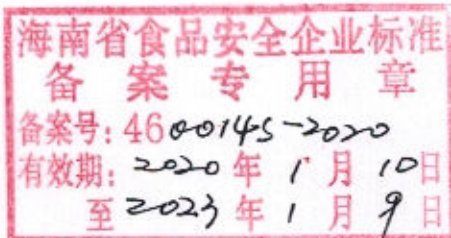 海南省食品安全企业标准
备案专用章
备案号: 4600145-2020
有效期: 2020年1月10日
至2023年1月9日